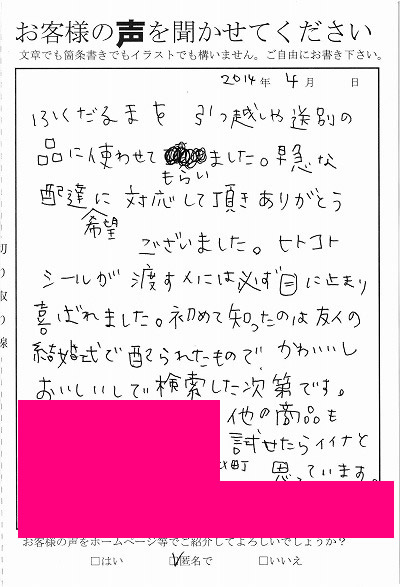 お客様の声を聞かせてください
文章でも箇条書きでもイラストでも構いません。ご自由にお書き下さい。
2014年 4月 日
ふくだるまを 引っ越しや送別の
品に使わせてもらいました。早急な
配達希望に対応して頂きありがとう
ございました。ヒトコト
シールが渡す人には必ず目に止まり
喜ばれました。初めて知ったのは友人の
結婚式で配られたもので、かわいいし
おいしいしで検索した次第です。
他の商品も
試せたらイイナと
町 思っています。
お客様の声をホームページ等でご紹介してよろしいでしょうか?
□はい ☑匿名で □いいえ
切り取り線